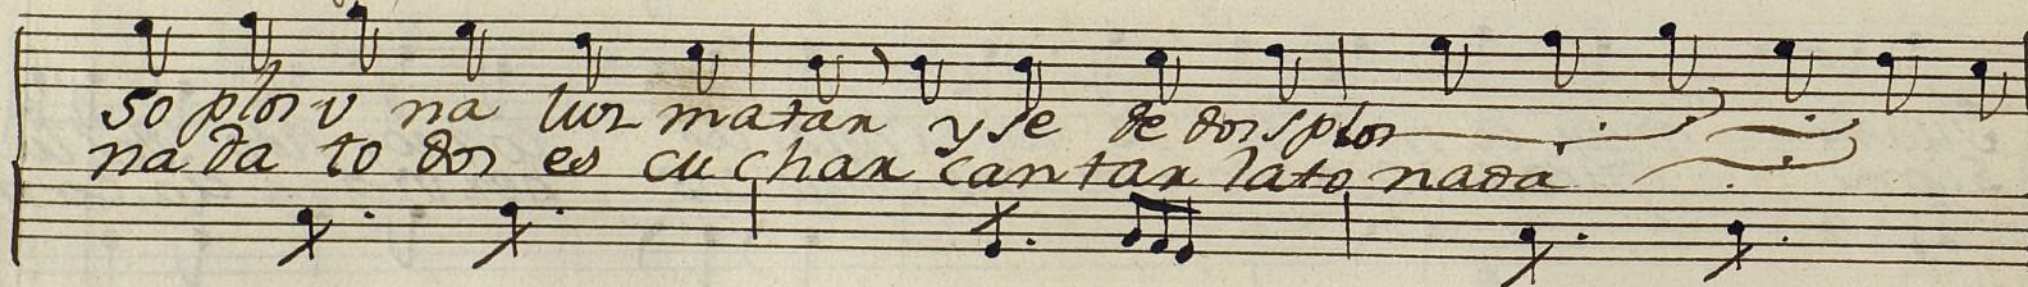 so plos u na luz matan y se de dos splos
na da to dos es cu chan cantan la to nada